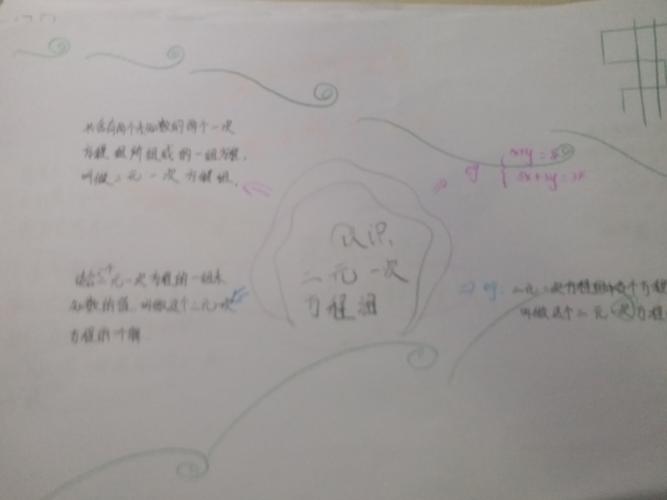 共含有两个未知数的两个一次
方程组所组成的一组方程,
叫做二元一次方程组.
eg { x+y=8
5x+3y=34
认识
二元一次
方程组
适合一个二元一次方程的一组未
知数的值,叫做这个二元一次
方程的一个解
eg: 二元一次方程组中各个方程
叫做这个二元一次方程